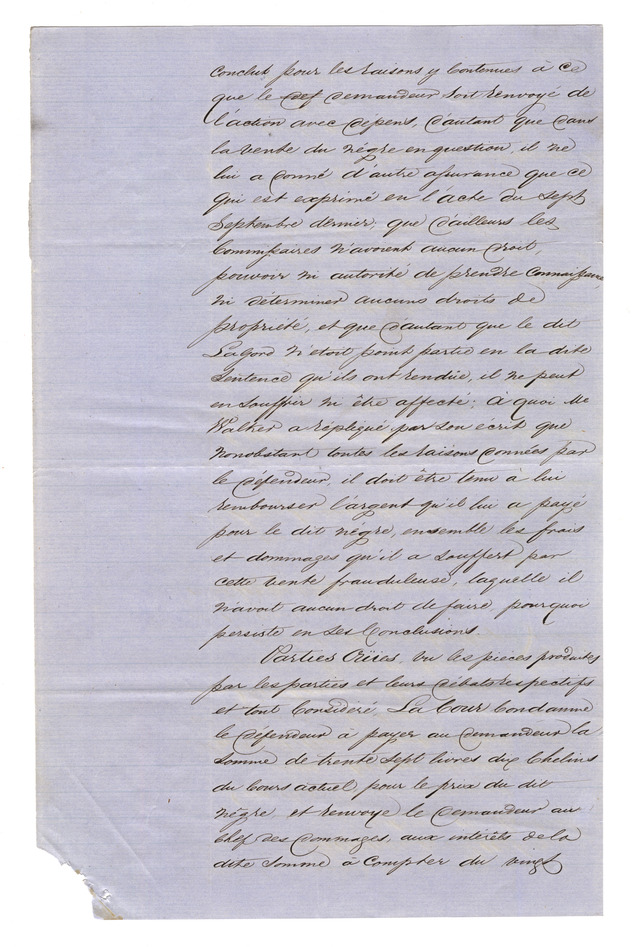 conclut, pour les raisons y Contenues à ce
que le def demandeur soit renvoyé de
l'action avec dépens, d'autant que dans
la vente du négre en question, il ne
lui a donné d'autre assurance que ce
qui est exprimé en l'acte du Sept
Septembre dernier, que d'ailleurs les
Commissaires n'avoient aucun droit,
pouvoir ni autorité de prendre Connaissance
ni déterminer aucuns droits de
propriété, et que d'autant que le dit
Lagord n'étoit point partie en la dite
Sentence qu'ils ont rendue, il ne peut
en souffrir ni être affecté; à quoi Mr
Walker a répliqué par son écrit que
nonobstant toutes les raisons données par
le défendeur, il doit être tenu à lui
rembourser l'argent qu'il lui a payé
pour le dit négre, ensemble les frais
et dommages qu'il a souffert par
cette vente frauduleuse, laquelle il
n'avoit aucun droit de faire pourquoi
persiste en ses Conclusions.
Parties Oüies, vu les pièces produites
par les parties et leurs débats respectifs
et tout Considéré, La Cour Condamne
le défendeur à payer au demandeur la
Somme de trente Sept livres dix Chelins
du Cours actuel pour le prix du dit
négre, et renvoye le demandeur au
Chef des dommages, aux intérêts de la
dite Somme à Compter du vingt